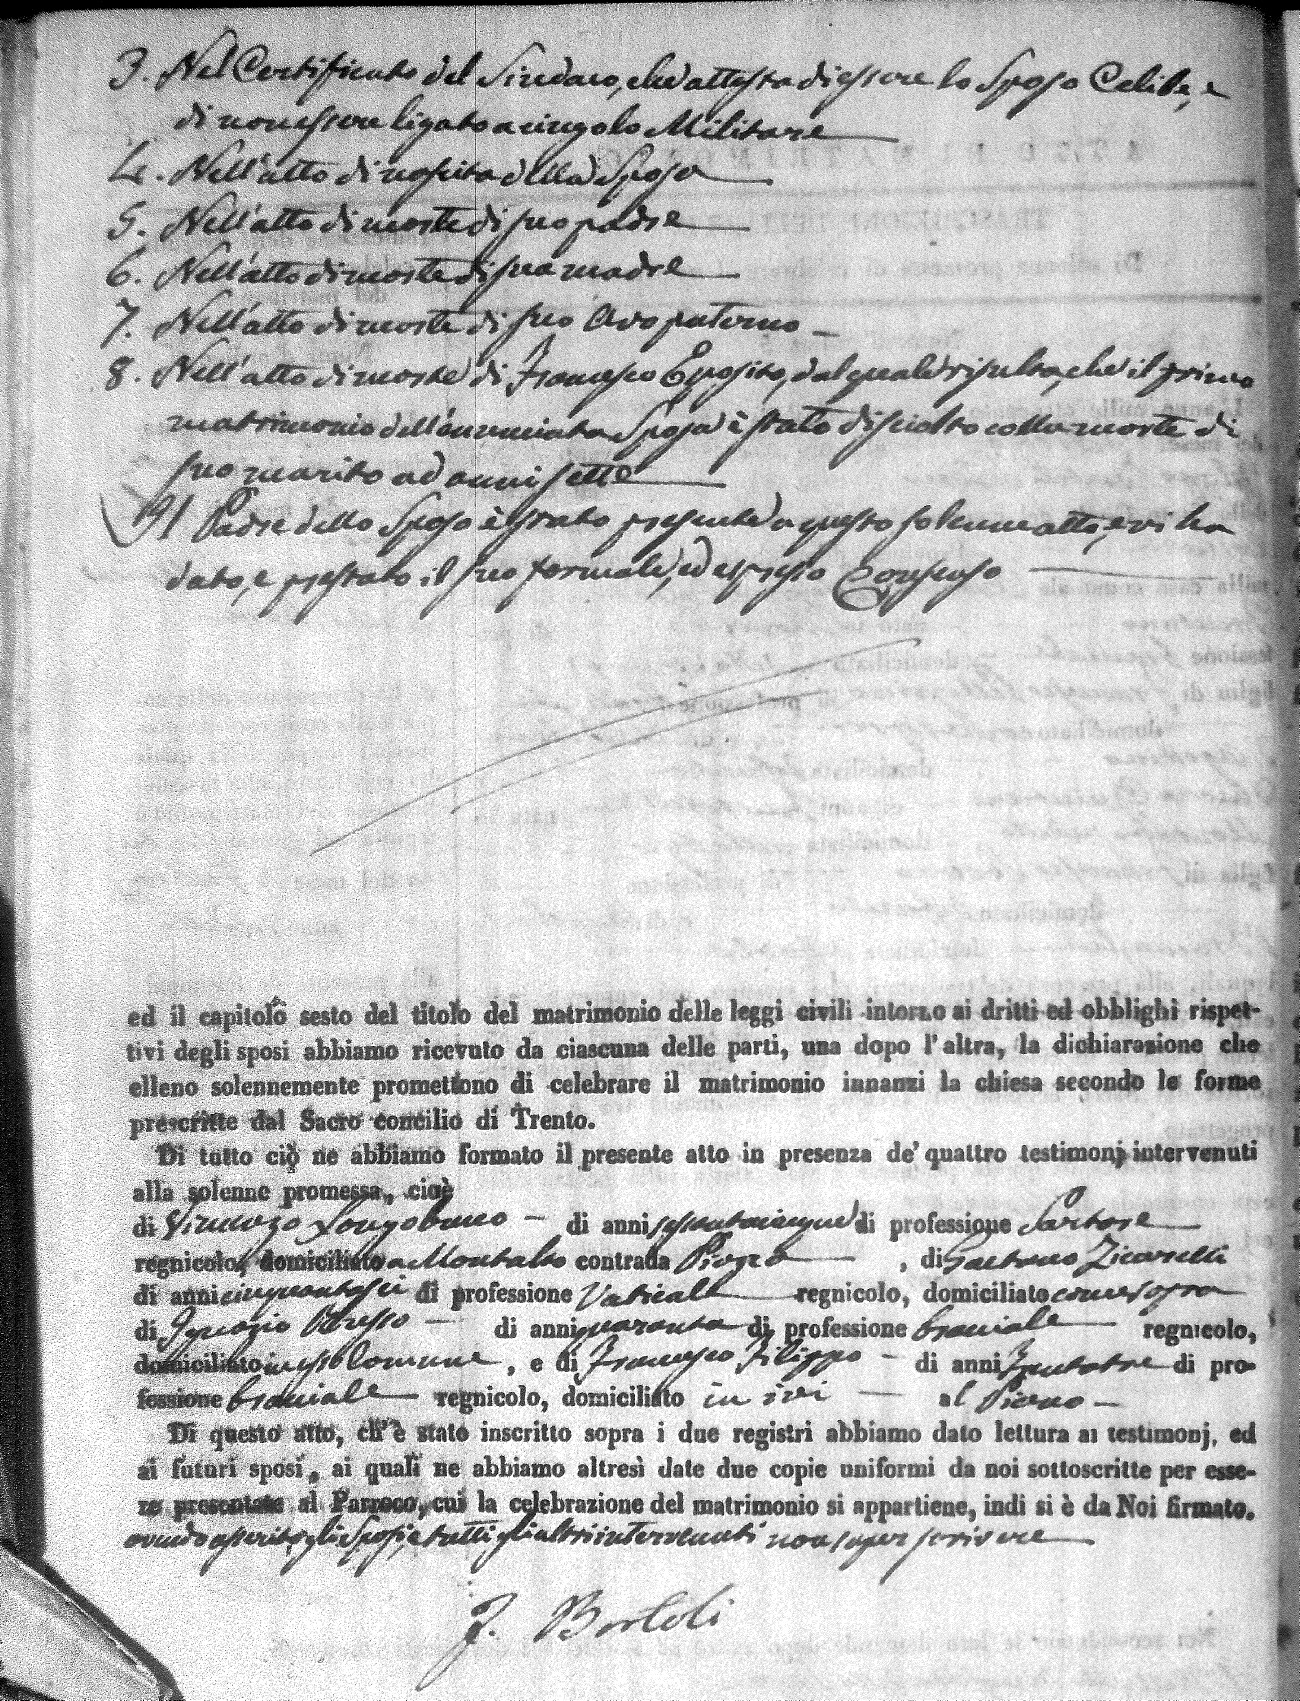 3. Nel Certificato del Sindaco, che attesta di essere lo Sposo Celibe, e
di non essere ligato a cingolo Militare
4. Nell'atto di nascita della Sposa
5. Nell'atto di morte di suo padre
6. Nell'atto di morte di sua madre
7. Nell'atto di morte di suo Avo paterno
8. Nell'atto di morte di Francesco Esposito, dal quale risulta, che il primo
matrimonio dell'enunciata Sposa è stato disciolto colla morte di
suo marito ad anni sette
Il Padre dello Sposo è stato presente a questo solenne atto, e vi ha
dato, e prestato il suo formale, ed espresso Consenso
ed il capitolo sesto del titolo del matrimonio delle leggi civili intorno ai dritti ed obblighi rispet-
tivi degli sposi abbiamo ricevuto da ciascuna delle parti, una dopo l'altra, la dichiarazione che
elleno solennemente promettono di celebrare il matrimonio innanzi la chiesa secondo le forme
prescritte dal Sacro concilio di Trento.
Di tutto ciò ne abbiamo formato il presente atto in presenza de' quattro testimonj intervenuti
alla solenne promessa, cioè
di Vincenzo Longobuco di anni sessantacinque di professione Sartore
regnicolo, domiciliato a Montalto contrada , di Gaetano Zicarelli
di anni cinquantasei di professione Vaticale regnicolo, domiciliato come sopra
di Ignazio di anni quaranta di professione braciale regnicolo,
domiciliato in esso Comune, e di Francesco Filippo di anni trentatre di pro-
fessione braciale regnicolo, domiciliato in ivi al
Di questo atto, ch'è stato inscritto sopra i due registri abbiamo dato lettura ai testimonj, ed
ai futuri sposi, ai quali ne abbiamo altresì date due copie uniformi da noi sottoscritte per esse-
re presentate al Parroco, cui la celebrazione del matrimonio si appartiene, indi si è da Noi firmato.
avendo asserito gli Sposi, e tutti gli altri intervenuti non saper scrivere
F. Bortoli